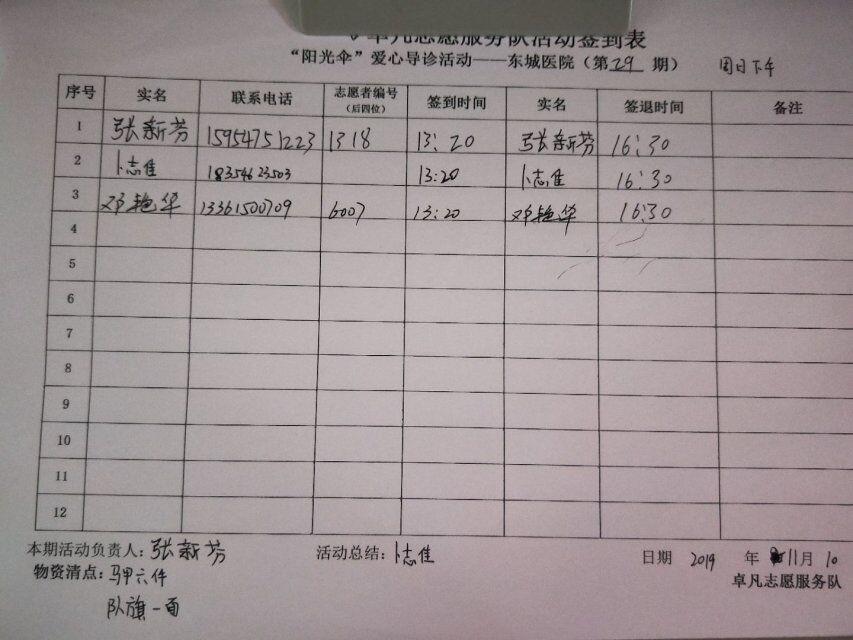 卓凡志愿服务队活动签到表
“阳光伞”爱心导诊活动——东城医院（第29期） 周日下午
序号 实名 联系电话 志愿者编号（后四位） 签到时间 实名 签退时间 备注
1 张新芳 15954751223 1318 13:20 张新芳 16:30
2 卜志佳 18354623503 13:20 卜志佳 16:30
3 邓艳华 13361500709 6007 13:20 邓艳华 16:30
4
5
6
7
8
9
10
11
12
本期活动负责人：张新芳 活动总结：卜志佳 日期 2019 年 11月 10
物资清点：马甲六件 卓凡志愿服务队
队旗一面